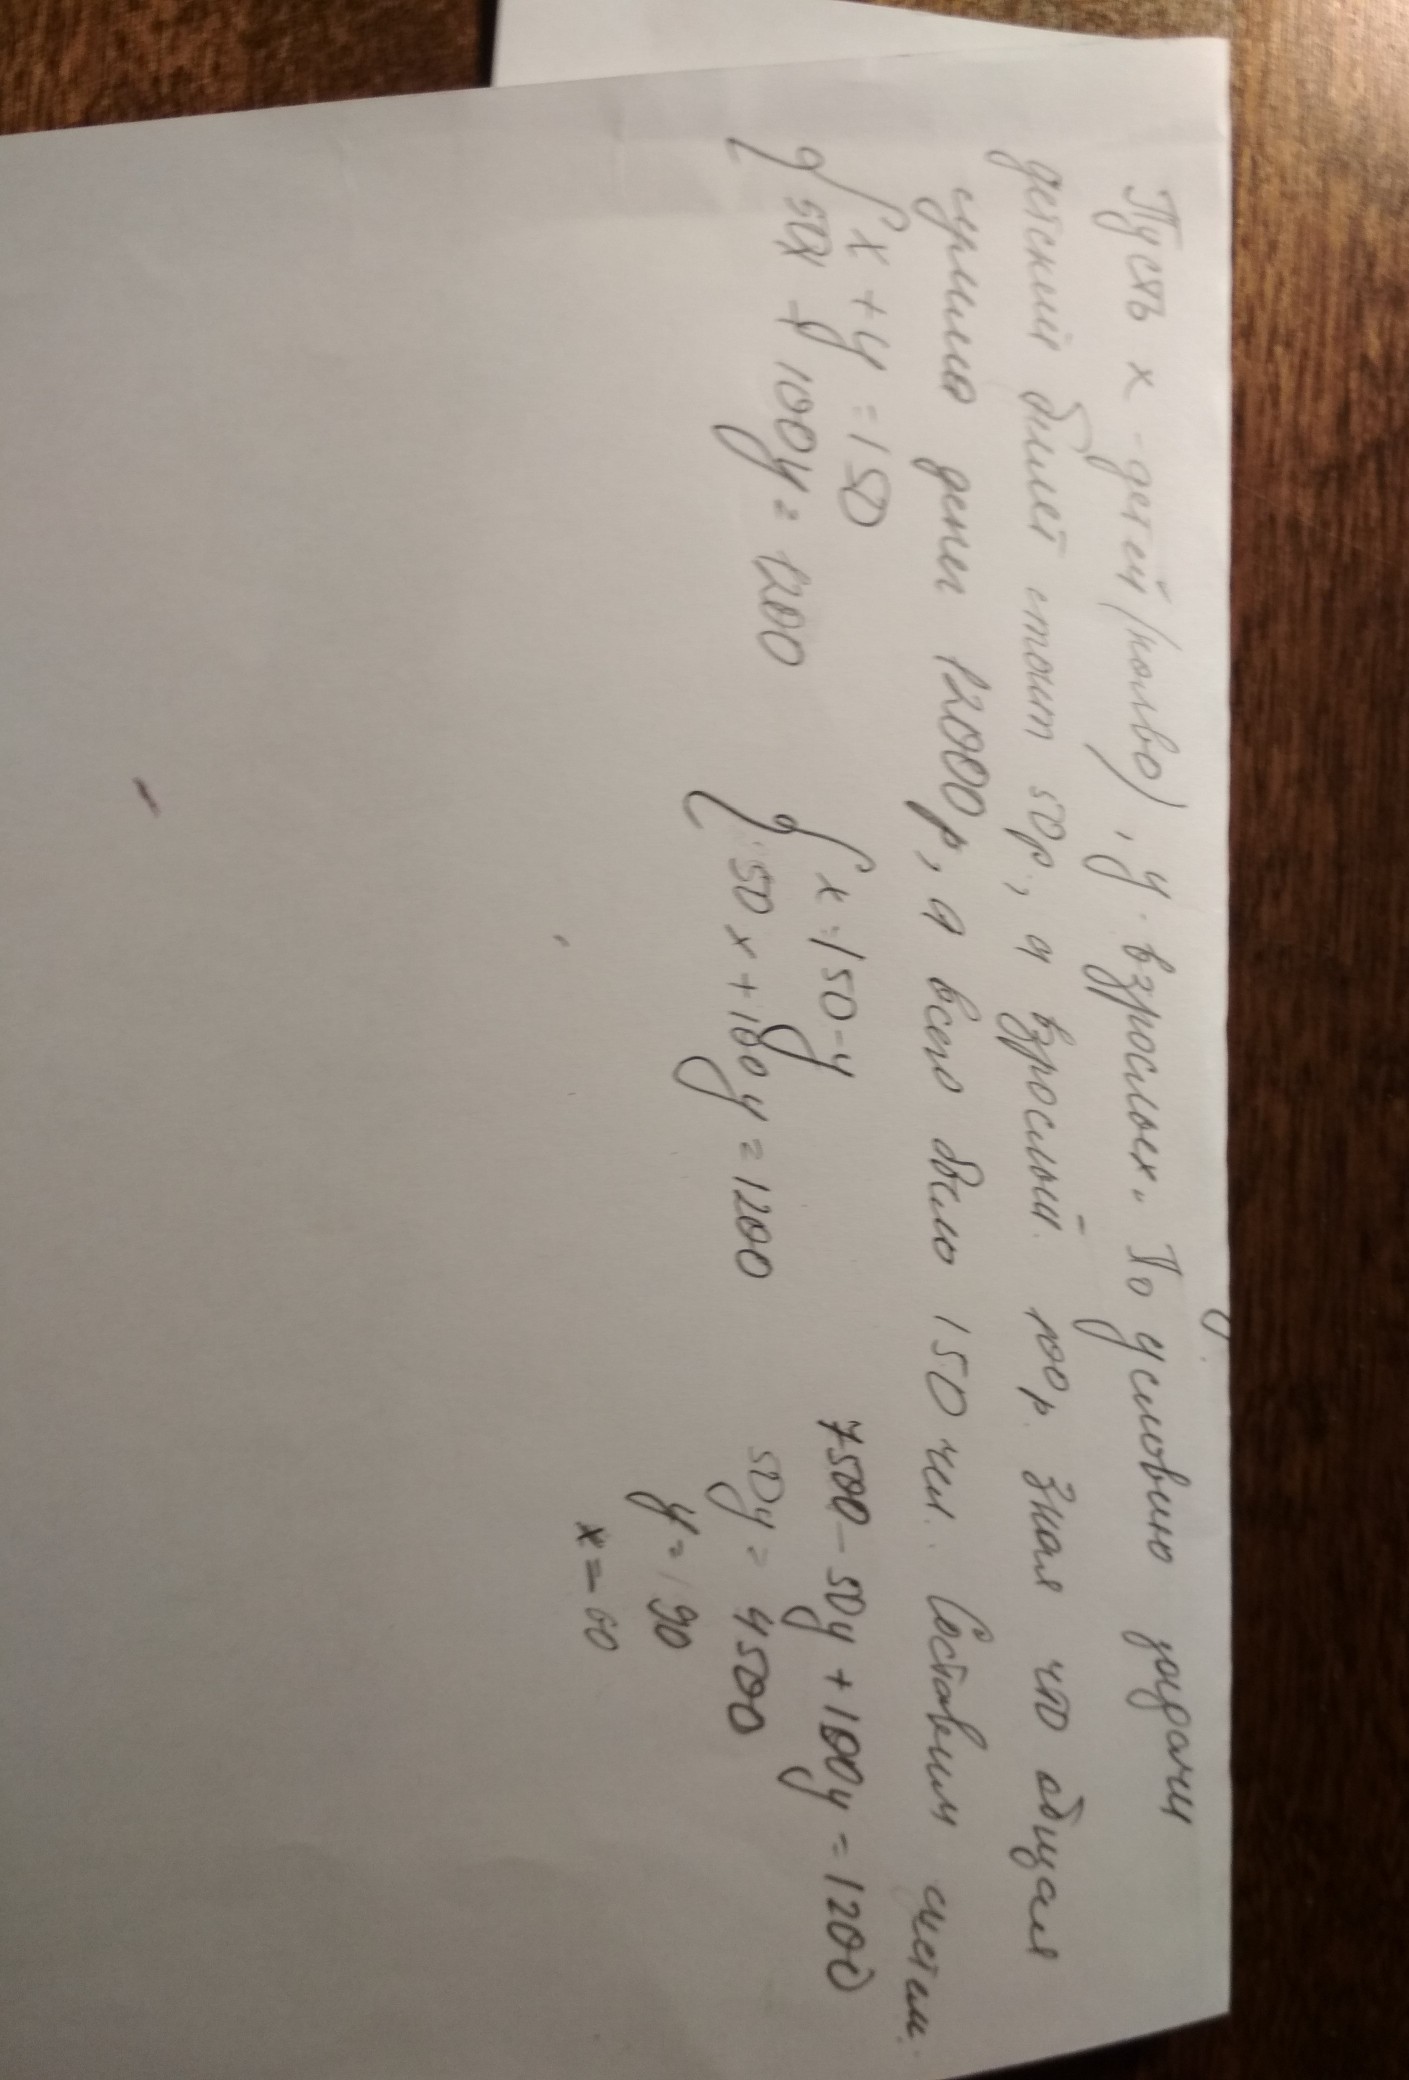 Пусть x - детей (колво), y - взрослых. По условию задачи
детский билет стоит 50р., а взрослый 100р. Зная что общая
сумма денег 12000р, а всего было 150 чел. Составим систем.
{ x + y = 150
50x + 100y = 1200
{ x = 150 - y
50x + 100y = 1200
7500 - 50y + 100y = 1200
50y = 4500
y = 90
x = 60